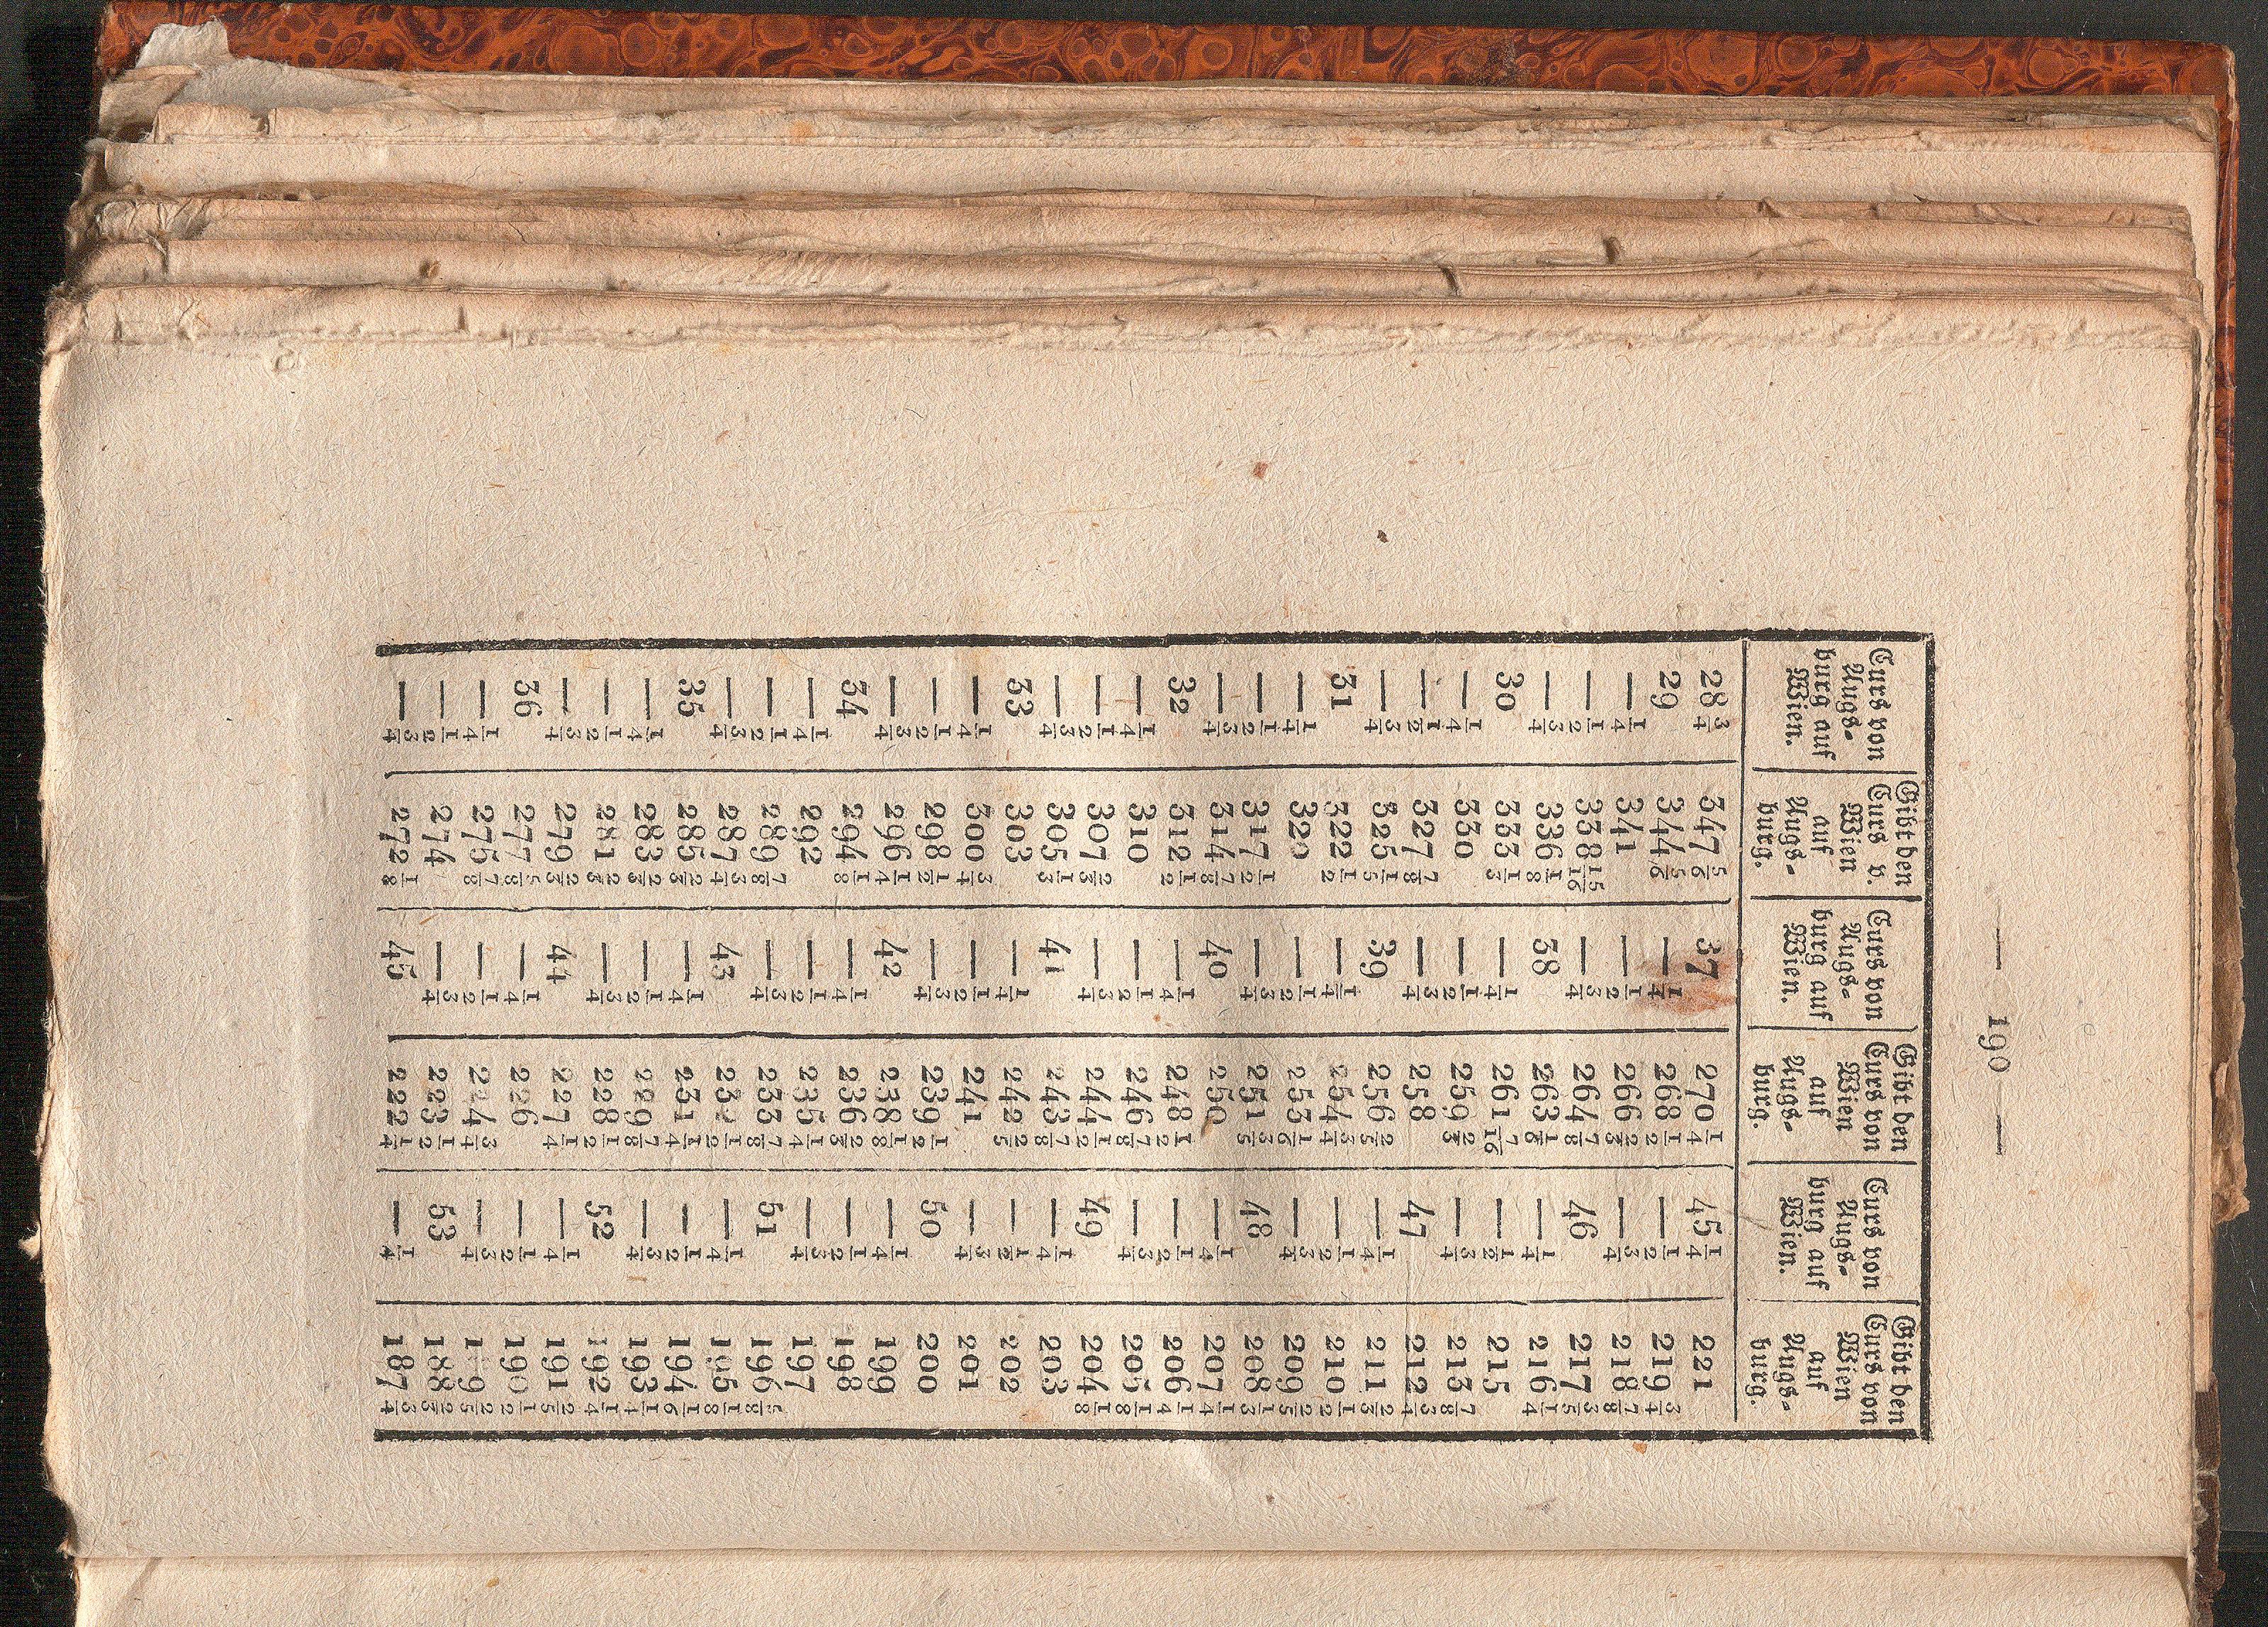 — 190 —
Curs von Augs- burg auf Wien. | Gibt den Curs v. Wien auf Augs- burg. | Curs von Augs- burg auf Wien. | Gibt den Curs von Wien auf Augs- burg. | Curs von Augs- burg auf Wien. | Gibt den Curs von Wien auf Augs- burg.
28 3/4 347 5/6 37 270 1/4 45 1/4 221
29 344 5/6 — 1/4 268 1/2 — 1/2 219 3/4
— 1/4 341 — 1/2 266 2/3 — 3/4 218 7/8
— 1/2 338 15/16 — 3/4 264 7/8 46 217 3/5
— 3/4 336 1/8 38 263 1/8 — 1/4 216 1/4
30 333 1/3 — 1/4 261 7/16 — 1/2 215
— 1/4 330 — 1/2 259 2/3 — 3/4 213 7/8
— 1/2 327 7/8 — 3/4 258 47 212 3/4
— 3/4 325 1/5 39 256 2/5 — 1/4 211 2/3
31 322 1/2 — 1/4 254 3/4 — 1/2 210 1/2
— 1/4 320 — 1/2 253 1/6 — 3/4 209 2/5
— 1/2 317 1/2 — 3/4 251 3/5 48 208 1/3
— 3/4 314 7/8 40 250 — 1/4 207 1/4
32 312 1/2 — 1/4 248 1/2 — 1/2 206 1/4
— 1/4 310 — 1/2 246 7/8 — 3/4 205 1/8
— 1/2 307 2/3 — 3/4 244 1/2 49 204 1/8
— 3/4 305 1/3 41 243 7/8 — 1/4 203
33 303 — 1/4 242 2/5 — 1/2 202
— 1/4 300 3/4 — 1/2 241 — 3/4 201
— 1/2 298 1/2 — 3/4 239 1/2 50 200
— 3/4 296 1/4 42 238 1/8 — 1/4 199
34 294 1/8 — 1/4 236 2/3 — 1/2 198
— 1/4 292 — 1/2 235 1/4 — 3/4 197
— 1/2 289 7/8 — 3/4 233 7/8 51 196 5/8
— 3/4 287 3/4 43 232 1/2 — 1/4 195 1/8
35 285 2/3 — 1/4 231 1/4 — 1/2 194 1/6
— 1/4 283 2/3 — 1/2 229 7/8 — 3/4 193 1/4
— 1/2 281 2/3 — 3/4 228 1/2 52 192 1/4
— 3/4 279 2/3 44 227 1/4 — 1/4 191 2/5
36 277 5/8 — 1/4 226 — 1/2 190 1/2
— 1/4 275 7/8 — 1/2 224 3/4 — 3/4 189 2/5
— 1/2 274 — 3/4 223 1/2 53 188 2/3
— 3/4 272 1/8 45 222 1/4 — 1/4 187 3/4